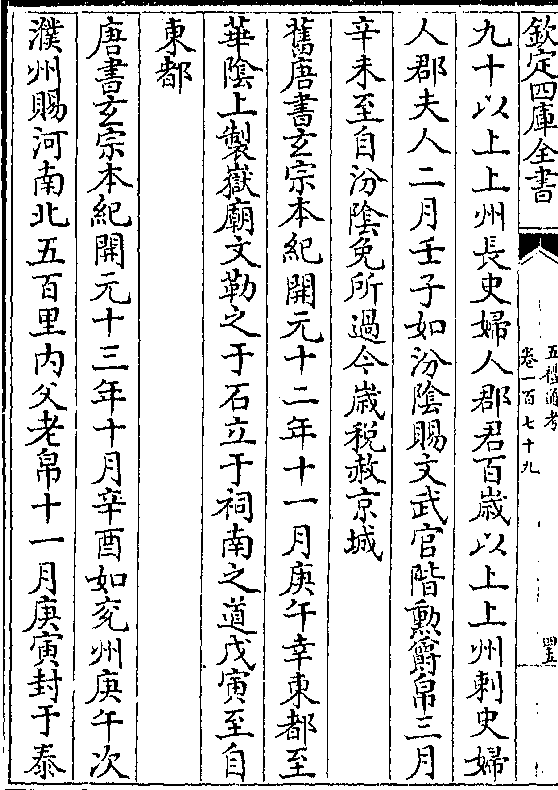 欽定四庫全書
五禮通考
卷一百七十九
九十以上上州長史婦人郡君百歲以上上州刺史婦
人郡夫人二月壬子如汾陰賜文武官階勲爵帛三月
辛未至自汾陰免所過今歲稅赦京城
舊唐書玄宗本紀開元十二年十一月庚午幸東都至
華陰上製嶽廟文勒之于石立于祠南之道戊寅至自
東都
唐書玄宗本紀開元十三年十月辛酉如兖州庚午次
濮州賜河南北五百里内父老帛十一月庚寅封于泰